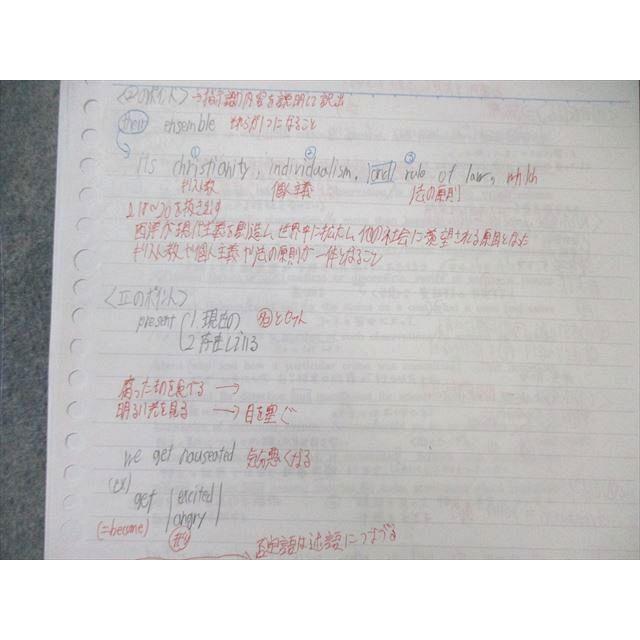 〈②のポイント〉 →指示語の内容を説明して訳出
their ensemble それらが1つになること
① ② ③
its christianity, individualism, and rule of law, which
キリスト教 個人主義 法の原則
l.18〜20を抜き出す
西洋が現代主義を創造し、世界中に拡大し、他の社会に羨望される原因となった
キリスト教や個人主義や法の原則が一体となること
〈Ⅱのポイント〉
present 1. 現在の 名とセット
2. 存在している
腐った物を食べる →
明るい光を見る → 目を塞ぐ
we get nauseated 気分悪くなる
(ex)
get excited
angry
(=become) 形
否定語は述語につなげる